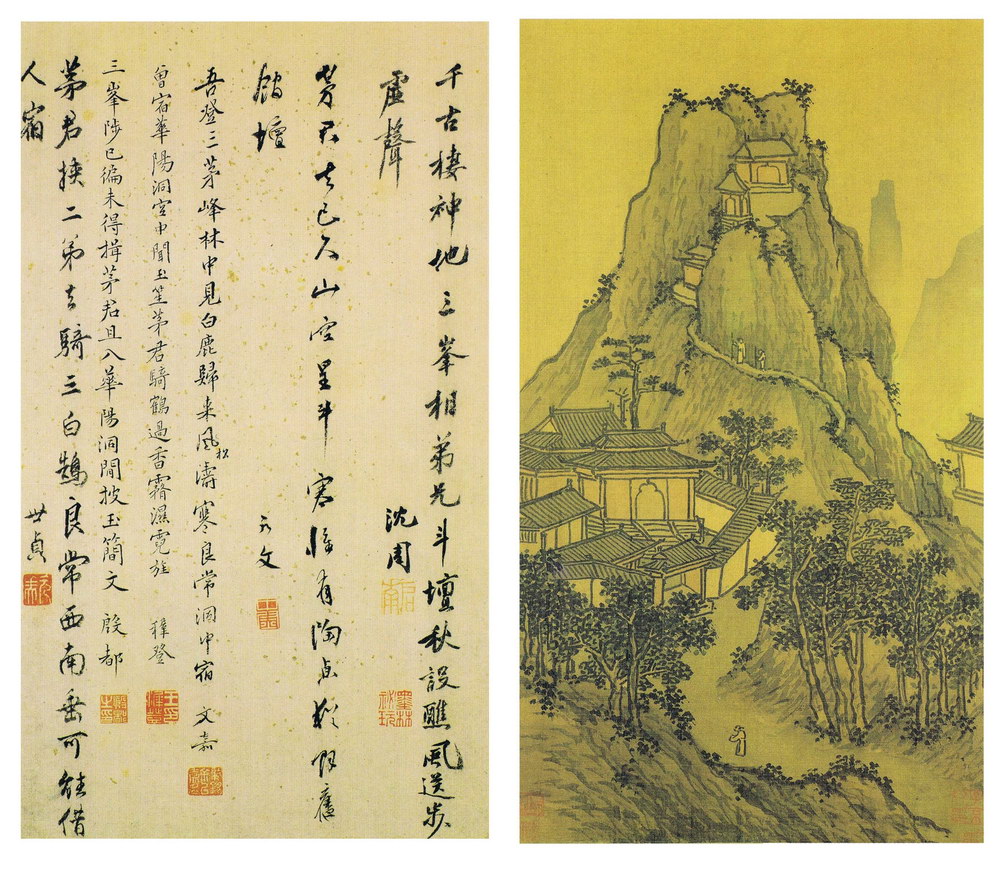 千古棲神地三峯相弟兄斗壇秋設醮風送步
虛聲　沈周
茅君去已久山空星斗寒 有陶 舊
館壇　允文
吾登三茅峰林中見白鹿歸来風濤寒良常洞中宿　文嘉
松
曾宿華陽洞宮中聞玉笙茅君騎鶴過香霧濕霓旌　穉登
三峯陟已徧未得揖茅君且入華陽洞閒披玉簡文　殷都
茅君挾二弟去騎三白鵠良常西南垂可能借
人宿　世貞